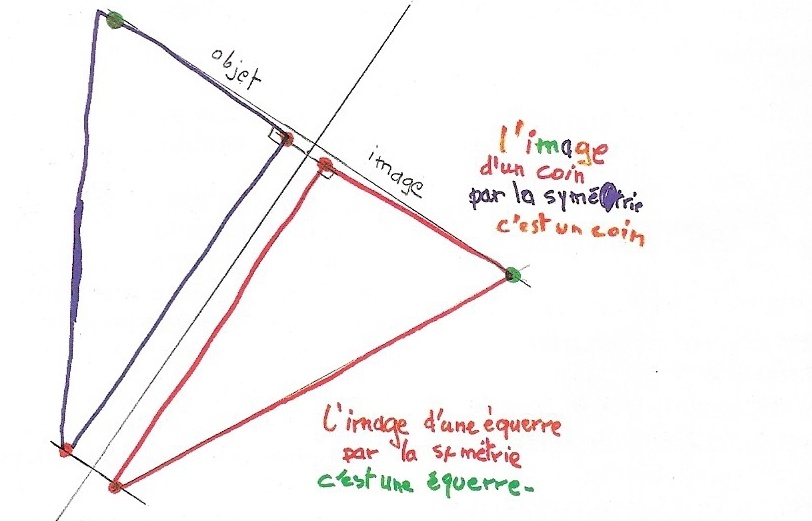 objet
image
l'image
d'un coin
par la symétrie
c'est un coin
L'image d'une équerre
par la symétrie
c'est une équerre.